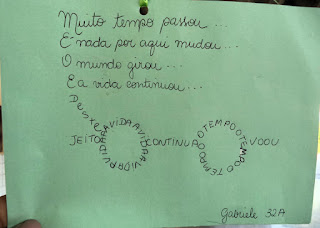 Muito tempo passou...
E nada por aqui mudou...
O mundo girou...
E a vida continuou...
Deste
JEITO A VIDA A VIDA A VIDA A VIDA CONTINUA O TEMPO O TEMPO O TEMPO VOOU
Gabriele 32A